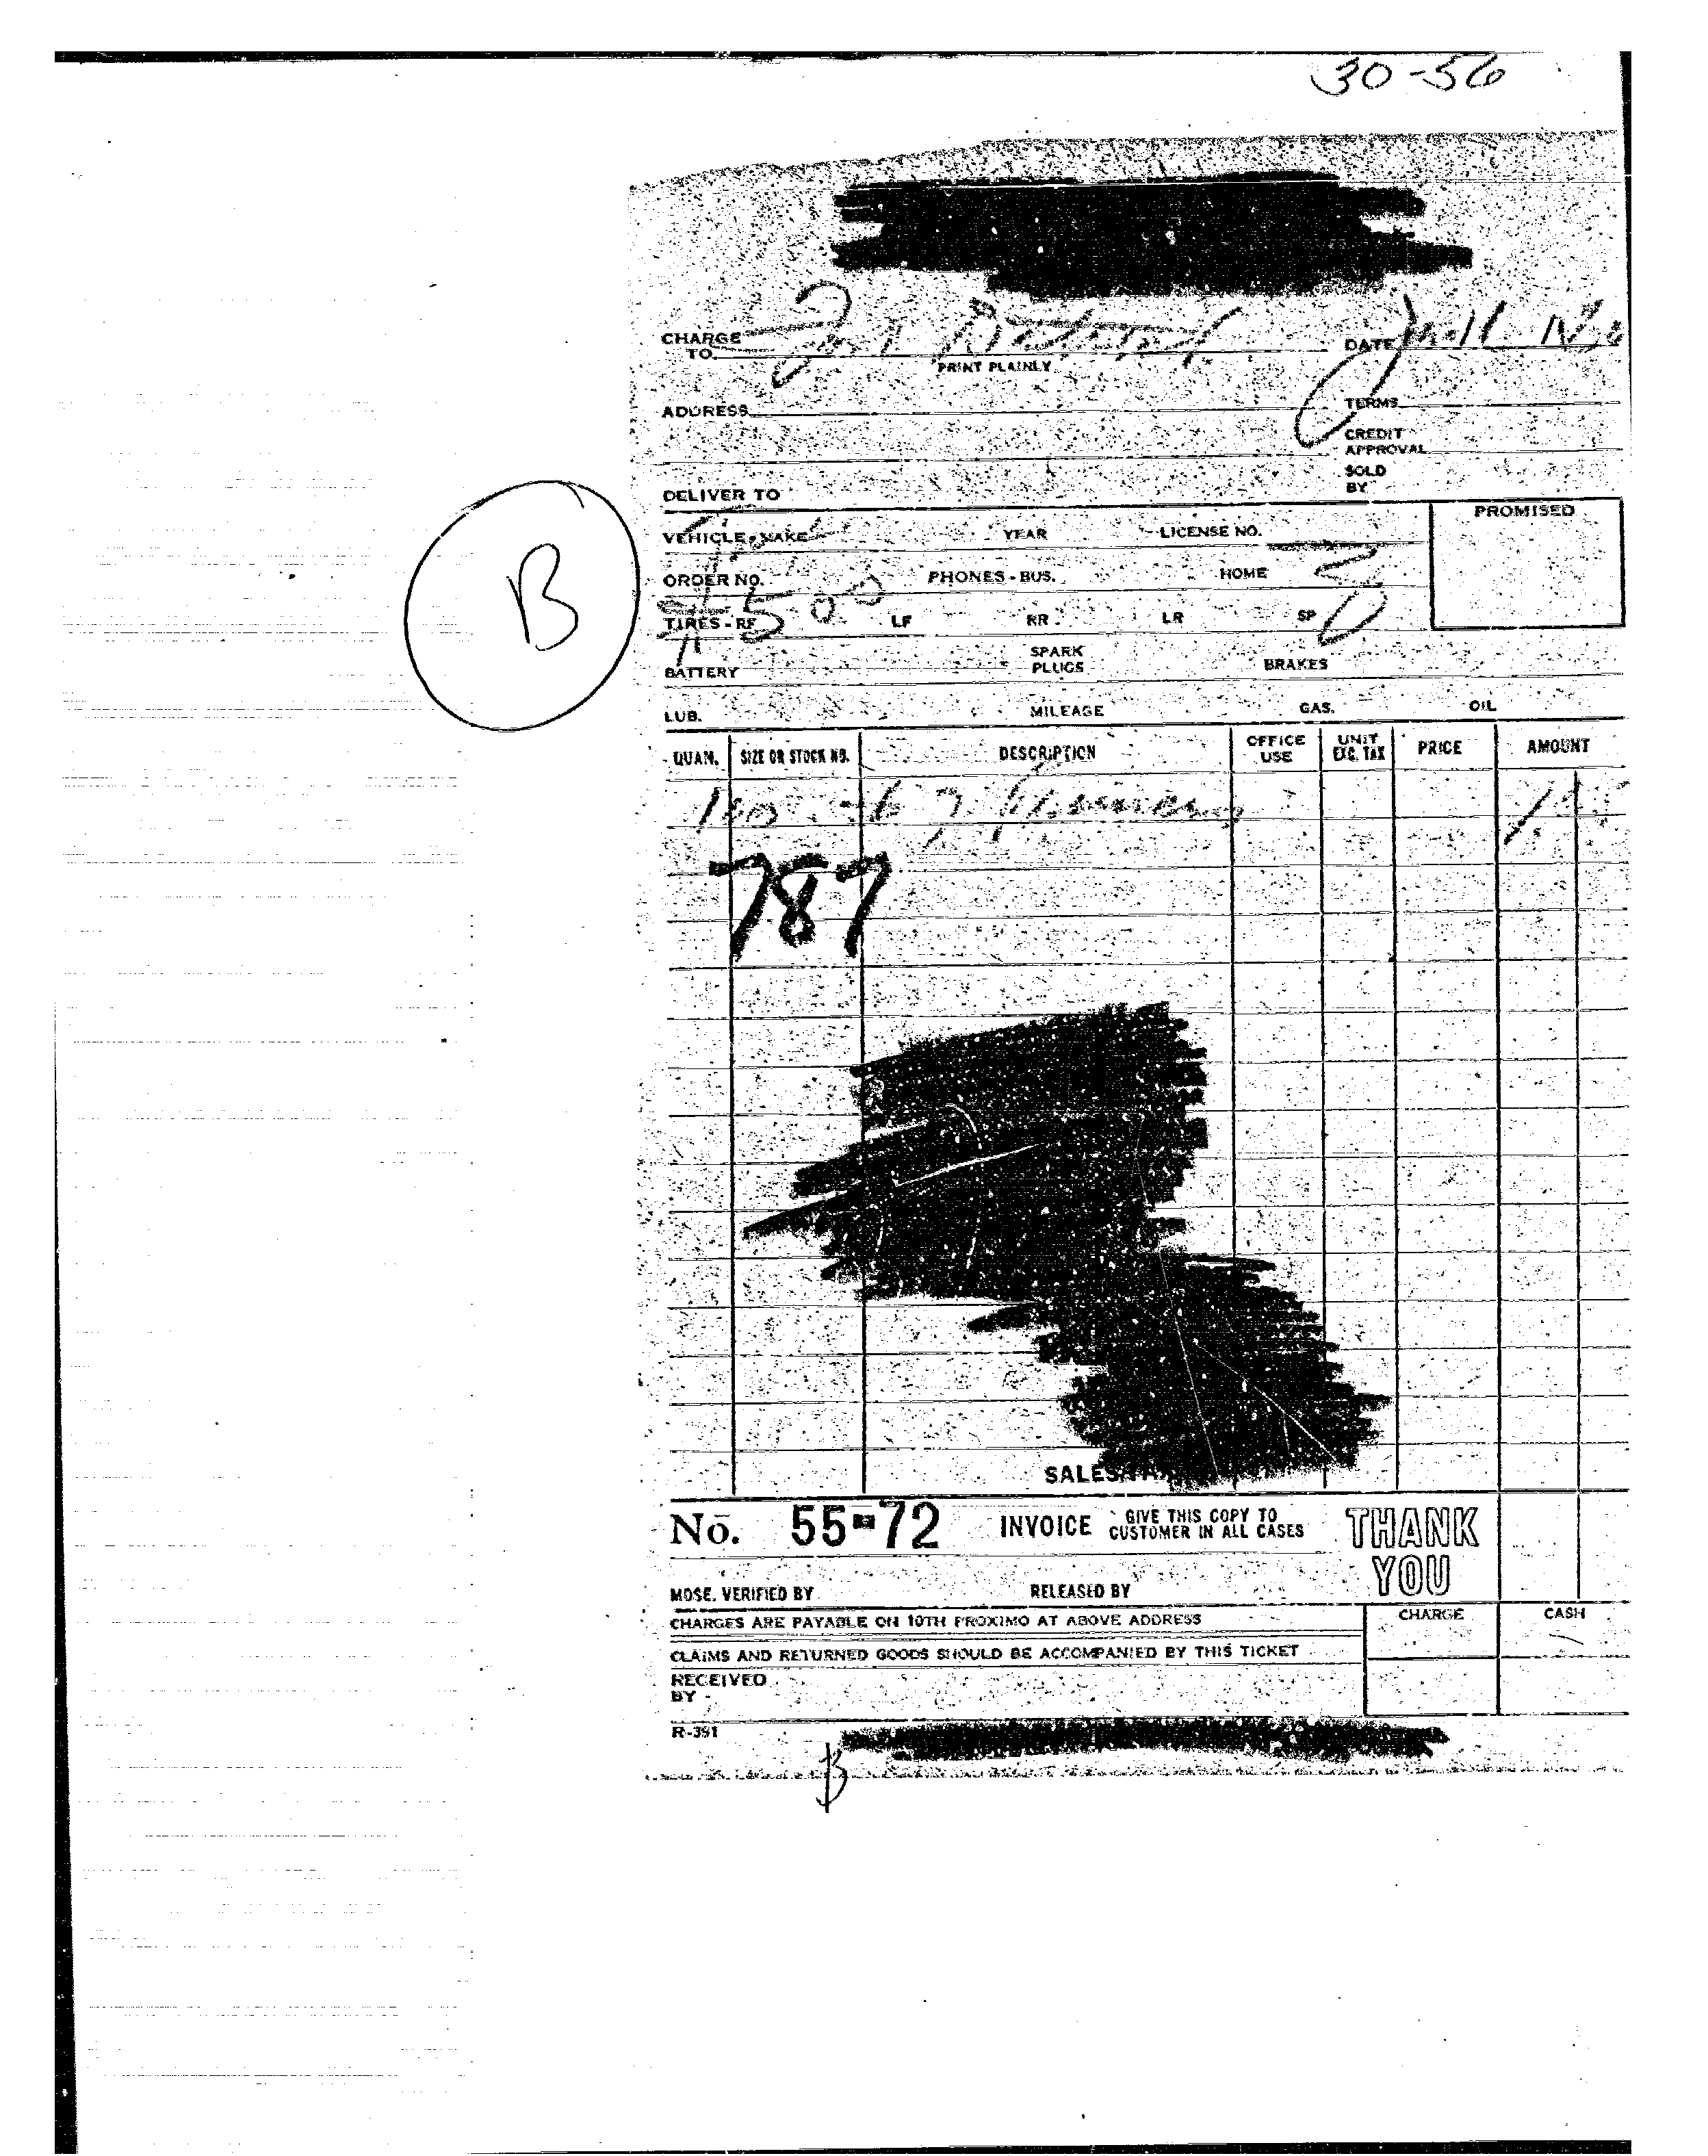 30-56
CHARGE
TO
PRINT PLAINLY
DATE
ADDRESS
TERMS
CREDIT
APPROVAL
SOLD
BY
DELIVER TO
PROMISED
VEHICLE - MAKE YEAR LICENSE NO.
B
ORDER NO. PHONES - BUS. HOME
TIRES - RF LF RR LR SP
BATTERY SPARK PLUGS BRAKES
LUB. MILEAGE GAS. OIL
QUAN. SIZE OR STOCK NO. DESCRIPTION OFFICE USE UNIT EXC. TAX PRICE AMOUNT
787
SALES
No. 55-72 INVOICE GIVE THIS COPY TO CUSTOMER IN ALL CASES THANK YOU
MDSE. VERIFIED BY RELEASED BY
CHARGES ARE PAYABLE ON 10TH PROXIMO AT ABOVE ADDRESS CHARGE CASH
CLAIMS AND RETURNED GOODS SHOULD BE ACCOMPANIED BY THIS TICKET
RECEIVED
BY
R-391
B